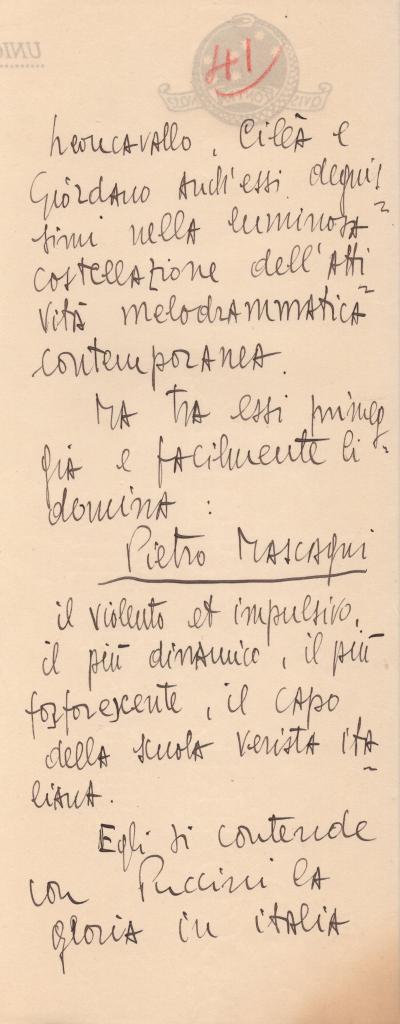 UNIO
41
Leoncavallo, Cilèa e
Giordano anch'essi degnis
simi nella luminosa
costellazione dell'atti
vità melodrammatica
contemporanea.
Ma tra essi primeg
gia e facilmente li
domina :
Pietro Mascagni
il violento et impulsivo,
il più dinamico, il più
fosforescente, il capo
della scuola verista ita
liana.
Egli si contende
con Puccini la
gloria in italia